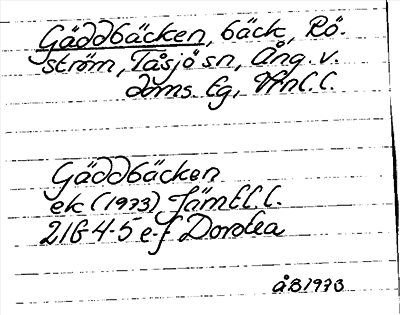 Gäddbäcken, bäck, Rö-
ström, Tåsjö sn, Ång. v.
doms. lg, Vnl. l.
Gäddbäcken
ek (1973) Jämtl. l.
21G-4-5 e-f Dorotea
åB1973